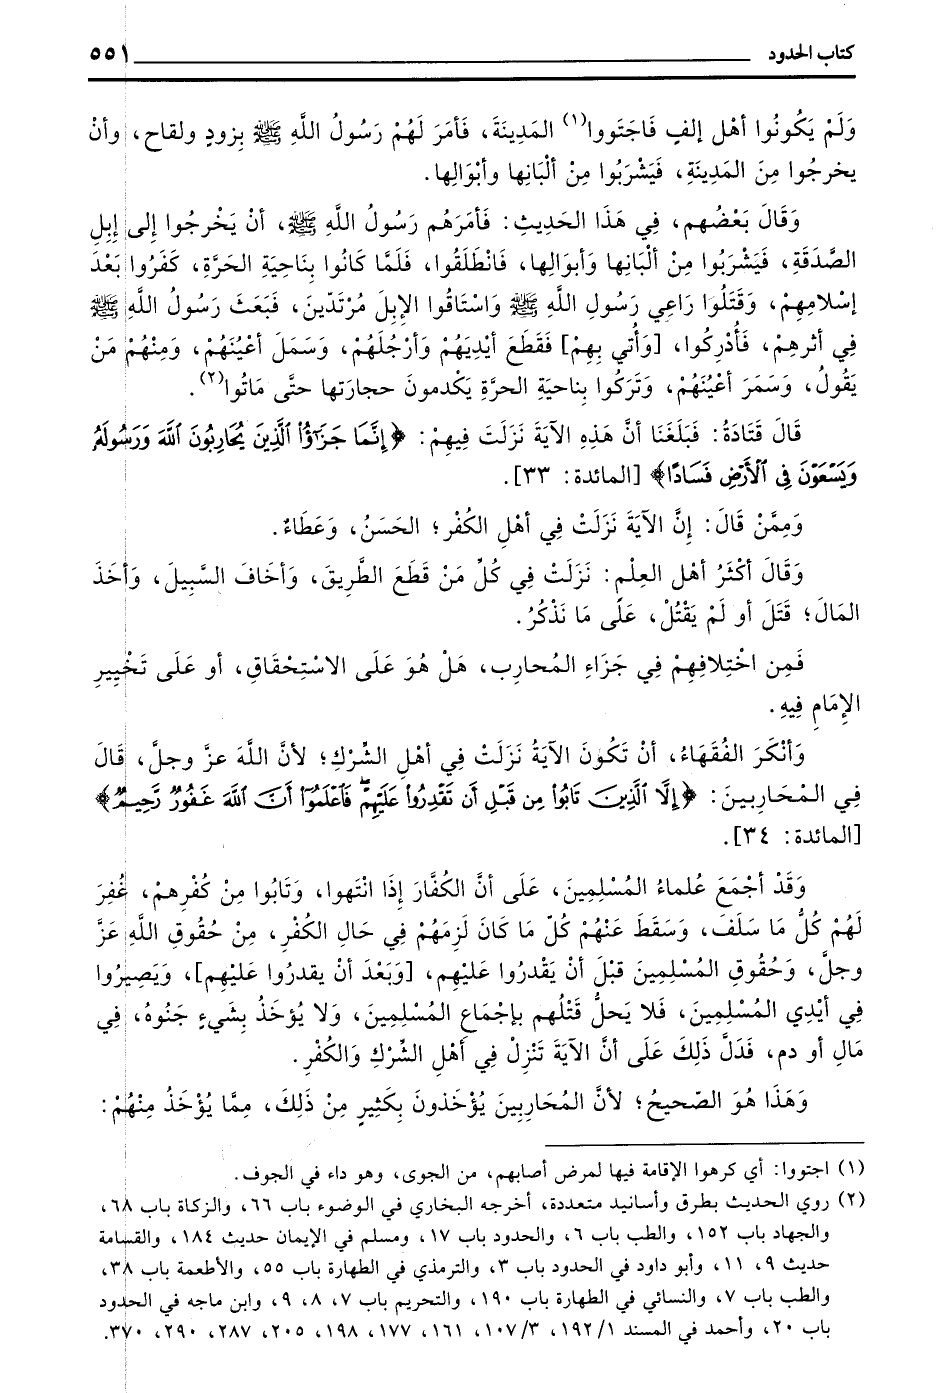 كتاب الحدود ٥٥١
وَلَمْ يَكُونُوا أهْل إلفٍ فَاجتَووا(١) المَدِينَةَ، فَأمَرَ لَهُمْ رَسُولُ اللَّهِ ﷺ بِزودٍ ولقاح، وأنْ
يخرجُوا مِنَ المَدِينَةِ، فَيَشْرَبُوا مِنْ ألْبَانِها وأبْوَالِها.
وَقَالَ بَعْضُهم، فِي هَذَا الحَدِيثِ: فَأمَرَهُم رَسُولُ اللَّهِ ﷺ، أنْ يَخْرجُوا إلى إبِلِ
الصَّدَقَةِ، فَيَشْرَبُوا مِنْ ألْبَانِها وَأبوَالِها، فَانْطَلَقُوا، فَلَمَّا كَانُوا بِنَاحِيَةِ الحَرَّةِ، كَفَرُوا بَعْدَ
إسْلامِهِمْ، وَقَتَلُوا رَاعِي رَسُولِ اللَّهِ ﷺ وَاسْتَاقُوا الإبِلَ مُرْتَدّينَ، فَبَعَثَ رَسُولُ اللَّهِ ﷺ
فِي أثْرهِمْ، فَأُدْرِكُوا، [وَأُتي بِهِمْ] فَقَطَعَ أيْدِيَهُمْ وَأرْجُلَهُمْ، وَسَمَلَ أعْيُنَهُمْ، وَمِنْهُمْ مَنْ
يَقُولُ، وَسَمَرَ أعْيُنَهُمْ، وَتَرَكُوا بِناحيةِ الحرَّةِ يَكْدمونَ حجارَتها حتَّى مَاتُوا(٢).
قَالَ قَتَادَةُ: فَبَلَغَنَا أنَّ هَذِهِ الآيَةَ نَزَلَتَ فِيهِمْ: ﴿إِنَّمَا جَزَٰٓؤُا۟ ٱلَّذِينَ يُحَارِبُونَ ٱللَّهَ وَرَسُولَهُ
وَيَسْعَوْنَ فِي ٱلْأَرْضِ فَسَادًا﴾ [المائدة: ٣٣].
وَمِمَّنْ قَالَ: إنَّ الآيَةَ نَزَلَتْ فِي أهْلِ الكُفْرِ؛ الحَسَنُ، وَعَطَاءٌ.
وَقَالَ أكْثَرُ أهْلِ العِلْمِ: نَزَلَتْ فِي كُلِّ مَنْ قَطَعَ الطَّرِيقَ، وَأخَافَ السَّبِيلَ، وَأخَذَ
المَالَ؛ قَتَلَ أو لَمْ يَقْتُلْ، عَلَى مَا نَذْكُرُ.
فَمِن اخْتِلافِهِمْ فِي جَزَاءِ المُحارِب، هَلْ هُوَ عَلَى الاسْتِحْقَاقِ، أو عَلَى تَخْيِيرِ
الإمَامِ فِيهِ.
وَأنْكَرَ الفُقَهاءُ، أنْ تَكُونَ الآيَةُ نَزَلَتْ فِي أهْلِ الشِّرْكِ؛ لأنَّ اللَّهَ عزَّ وجلَّ، قَالَ
فِي المُحَارِبينَ: ﴿إِلَّا ٱلَّذِينَ تَابُوا۟ مِن قَبْلِ أَن تَقْدِرُوا۟ عَلَيْهِمْ فَٱعْلَمُوٓا۟ أَنَّ ٱللَّهَ غَفُورٌ رَّحِيمٌ﴾
[المائدة: ٣٤].
وَقَدْ أجْمَعَ عُلماءُ المُسْلِمِينَ، عَلَى أنَّ الكُفَّارَ إذَا انْتَهوا، وَتَابُوا مِنْ كُفْرِهمْ، غُفِرَ
لَهُمْ كُلُّ مَا سَلَفَ، وَسَقَطَ عَنْهُمْ كُلّ مَا كَانَ لَزِمَهُمْ فِي حَالِ الكُفْرِ، مِنْ حُقُوقِ اللَّهِ عَزَّ
وجلَّ، وَحُقُوقِ المُسْلِمِينَ قبْلَ أنْ يَقْدرُوا عَليْهم، [وَبَعْدَ أنْ يقدرُوا عَليْهم]، وَيَصِيرُوا
فِي أيْدِي المُسْلِمِينَ، فَلا يَحلُّ قَتْلُهم بإجْمَاعِ المُسْلِمِينَ، وَلا يُؤخَذُ بِشَيءٍ جَنُوهُ، فِي
مَالٍ أو دم، فَدَلَّ ذَلِكَ عَلَى أنَّ الآيَةَ تَنْزِلْ فِي أهْلِ الشِّرْكِ وَالكُفْرِ.
وَهَذَا هُوَ الصّحيحُ؛ لأنَّ المُحَاربينَ يُؤخَذونَ بِكَثِيرٍ مِنْ ذَلِكَ، مِمَّا يُؤْخَذُ مِنْهُمْ:
(١) اجتووا: أي كرهوا الإقامة فيها لمرض أصابهم، من الجوى، وهو داء في الجوف.
(٢) روي الحديث بطرق وأسانيد متعددة، أخرجه البخاري في الوضوء باب ٦٦، والزكاة باب ٦٨،
والجهاد باب ١٥٢، والطب باب ٦، والحدود باب ١٧، ومسلم في الإيمان حديث ١٨٤، والقسامة
حديث ٩، ١١، وأبو داود في الحدود باب ٣، والترمذي في الطهارة باب ٥٥، والأطعمة باب ٣٨،
والطب باب ٧، والنسائي في الطهارة باب ١٩٠، والتحريم باب ٧، ٨، ٩، وابن ماجه في الحدود
باب ٢٠، وأحمد في المسند ١/ ١٩٢، ٣/ ١٠٧، ١٦١، ١٧٧، ١٩٨، ٢٠٥، ٢٨٧، ٢٩٠، ٣٧٠.